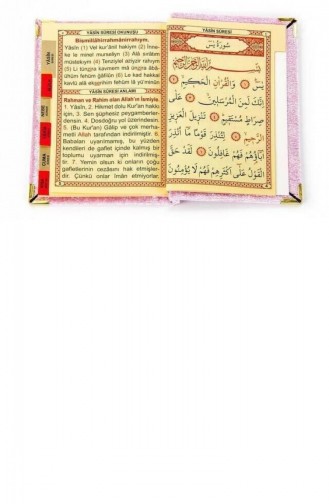 YÂSÎN SÛRESİ OKUNUŞU
Bismillâhirrahmânirrahıym.
Yâsîn (1) Vel kur'ânil hakiym (2) İnne-
ke le minel murseliyn (3) Alâ sırâtım
müstekıym (4) Tenziylel aziyzir rahıym
(5) Li tünzira kavmem mâ ünzira âbâ-
ühüm fehüm ğâfilûn (6) Le kad hakkal
kavlü alâ ekserihim fehüm lâ yü'minûn
YÂSİN SÛRESİ ANLAMI
Rahman ve Rahim olan Allah'ın İsmiyle
1. Yâsîn, 2. Hikmet dolu Kur'an hakkı
için, 3. Sen şüphesiz peygamberler-
densin. 4. Dosdoğru yol üzerindesin.
5. (Bu Kur'an) Gâlip ve çok merha-
metli Allah tarafından indirilmiştir. 6.
Babaları uyarılmamış, bu yüzden
kendileri de gaflet içinde kalmış bir
toplumu uyarman için indirilmiş-
tir. 7. Yemin olsun ki onların çoğu
gafletlerinin cezâsını hak etmişler-
dir. Çünkü onlar îman etmiyorlar.
YÂSİN SÛRESİ
سُورَةُ يٰسٓ
بِسْمِ اللّٰهِ الرَّحْمٰنِ الرَّحِيمِ
يٰسٓ ۝ وَالْقُرْاٰنِ الْحَكِيمِ ۝
اِنَّكَ لَمِنَ الْمُرْسَلِينَ ۝ عَلٰى
صِرَاطٍ مُسْتَقِيمٍ ۝ تَنْزِيلَ الْعَزِيزِ
الرَّحِيمِ ۝ لِتُنْذِرَ قَوْمًا مَٓا اُنْذِرَ
اٰبَٓاؤُهُمْ فَهُمْ غَافِلُونَ ۝ لَقَدْ حَقَّ
الْقَوْلُ عَلٰٓى اَكْثَرِهِمْ فَهُمْ لَا يُؤْمِنُونَ
YÂSİN
CUMA